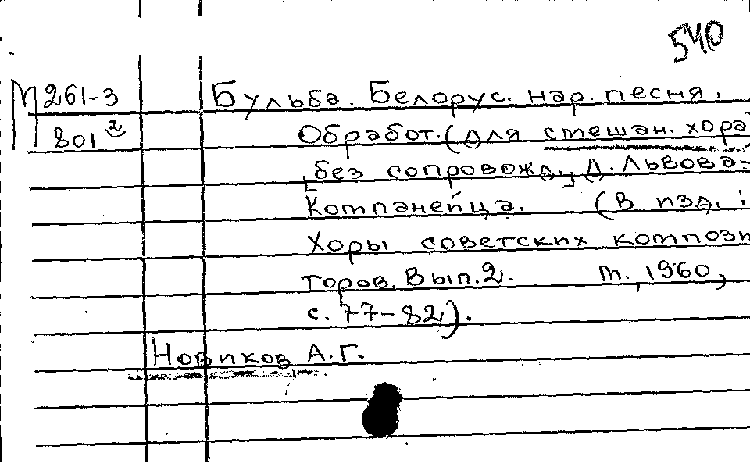 540
М 261-3
801 2
Бульба. Белорус. нар. песня.
Обработ. (для смешан. хора
без сопровожд.) Д. Львова-
Компанейца. (В изд.:
Хоры советских компози
торов. Вып. 2. М., 1960,
с. 77-82).
Новиков А.Г.